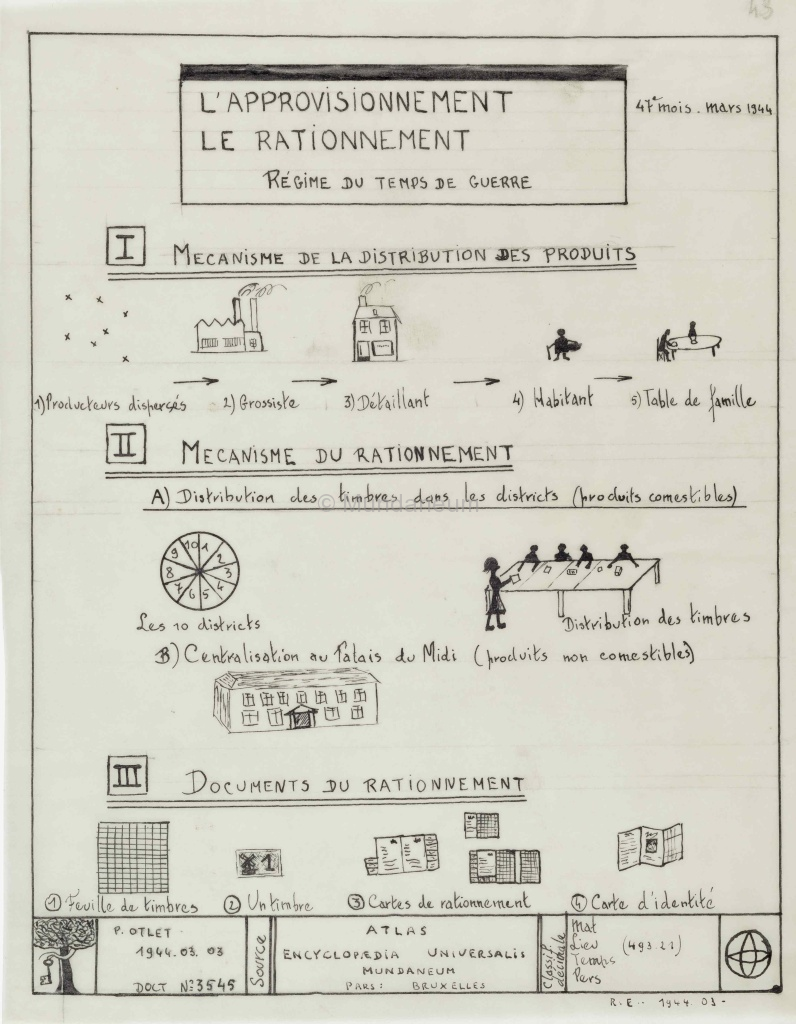 43
L'APPROVISIONNEMENT
LE RATIONNEMENT
RÉGIME DU TEMPS DE GUERRE
47e mois. mars 1944
I MECANISME DE LA DISTRIBUTION DES PRODUITS
1) Producteurs dispersés 2) Grossiste 3) Détaillant 4) Habitant 5) Table de famille
II MECANISME DU RATIONNEMENT
A) Distribution des timbres dans les districts (produits comestibles)
© Mundaneum
1 2 3 4 5 6 7 8 9 10
Les 10 districts
Distribution des timbres
B) Centralisation au Palais du Midi (produits non comestibles)
III DOCUMENTS DU RATIONNEMENT
1
① Feuille de timbres ② Un timbre ③ Cartes de rationnement ④ Carte d'identité
P. OTLET
1944.03.03
DOCT No 3545
Source
ATLAS
ENCYCLOPÆDIA UNIVERSALIS
MUNDANEUM
PARS: BRUXELLES
Classif. décidale
Mat
Lieu (493.21)
Temps
Pers
R.E.. 1944.03-